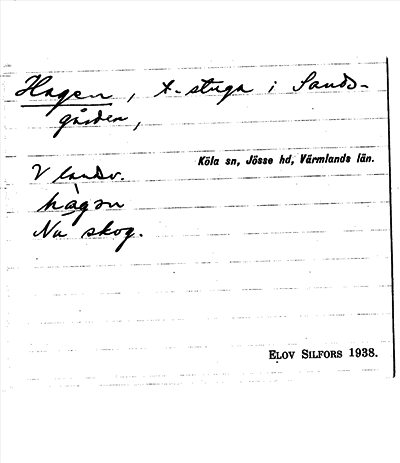 Hagen, x-stuga i Sands-
gården,
Köla sn, Jösse hd, Värmlands län.
V landv.
hàgan
Nu skog.
ELOV SILFORS 1938.